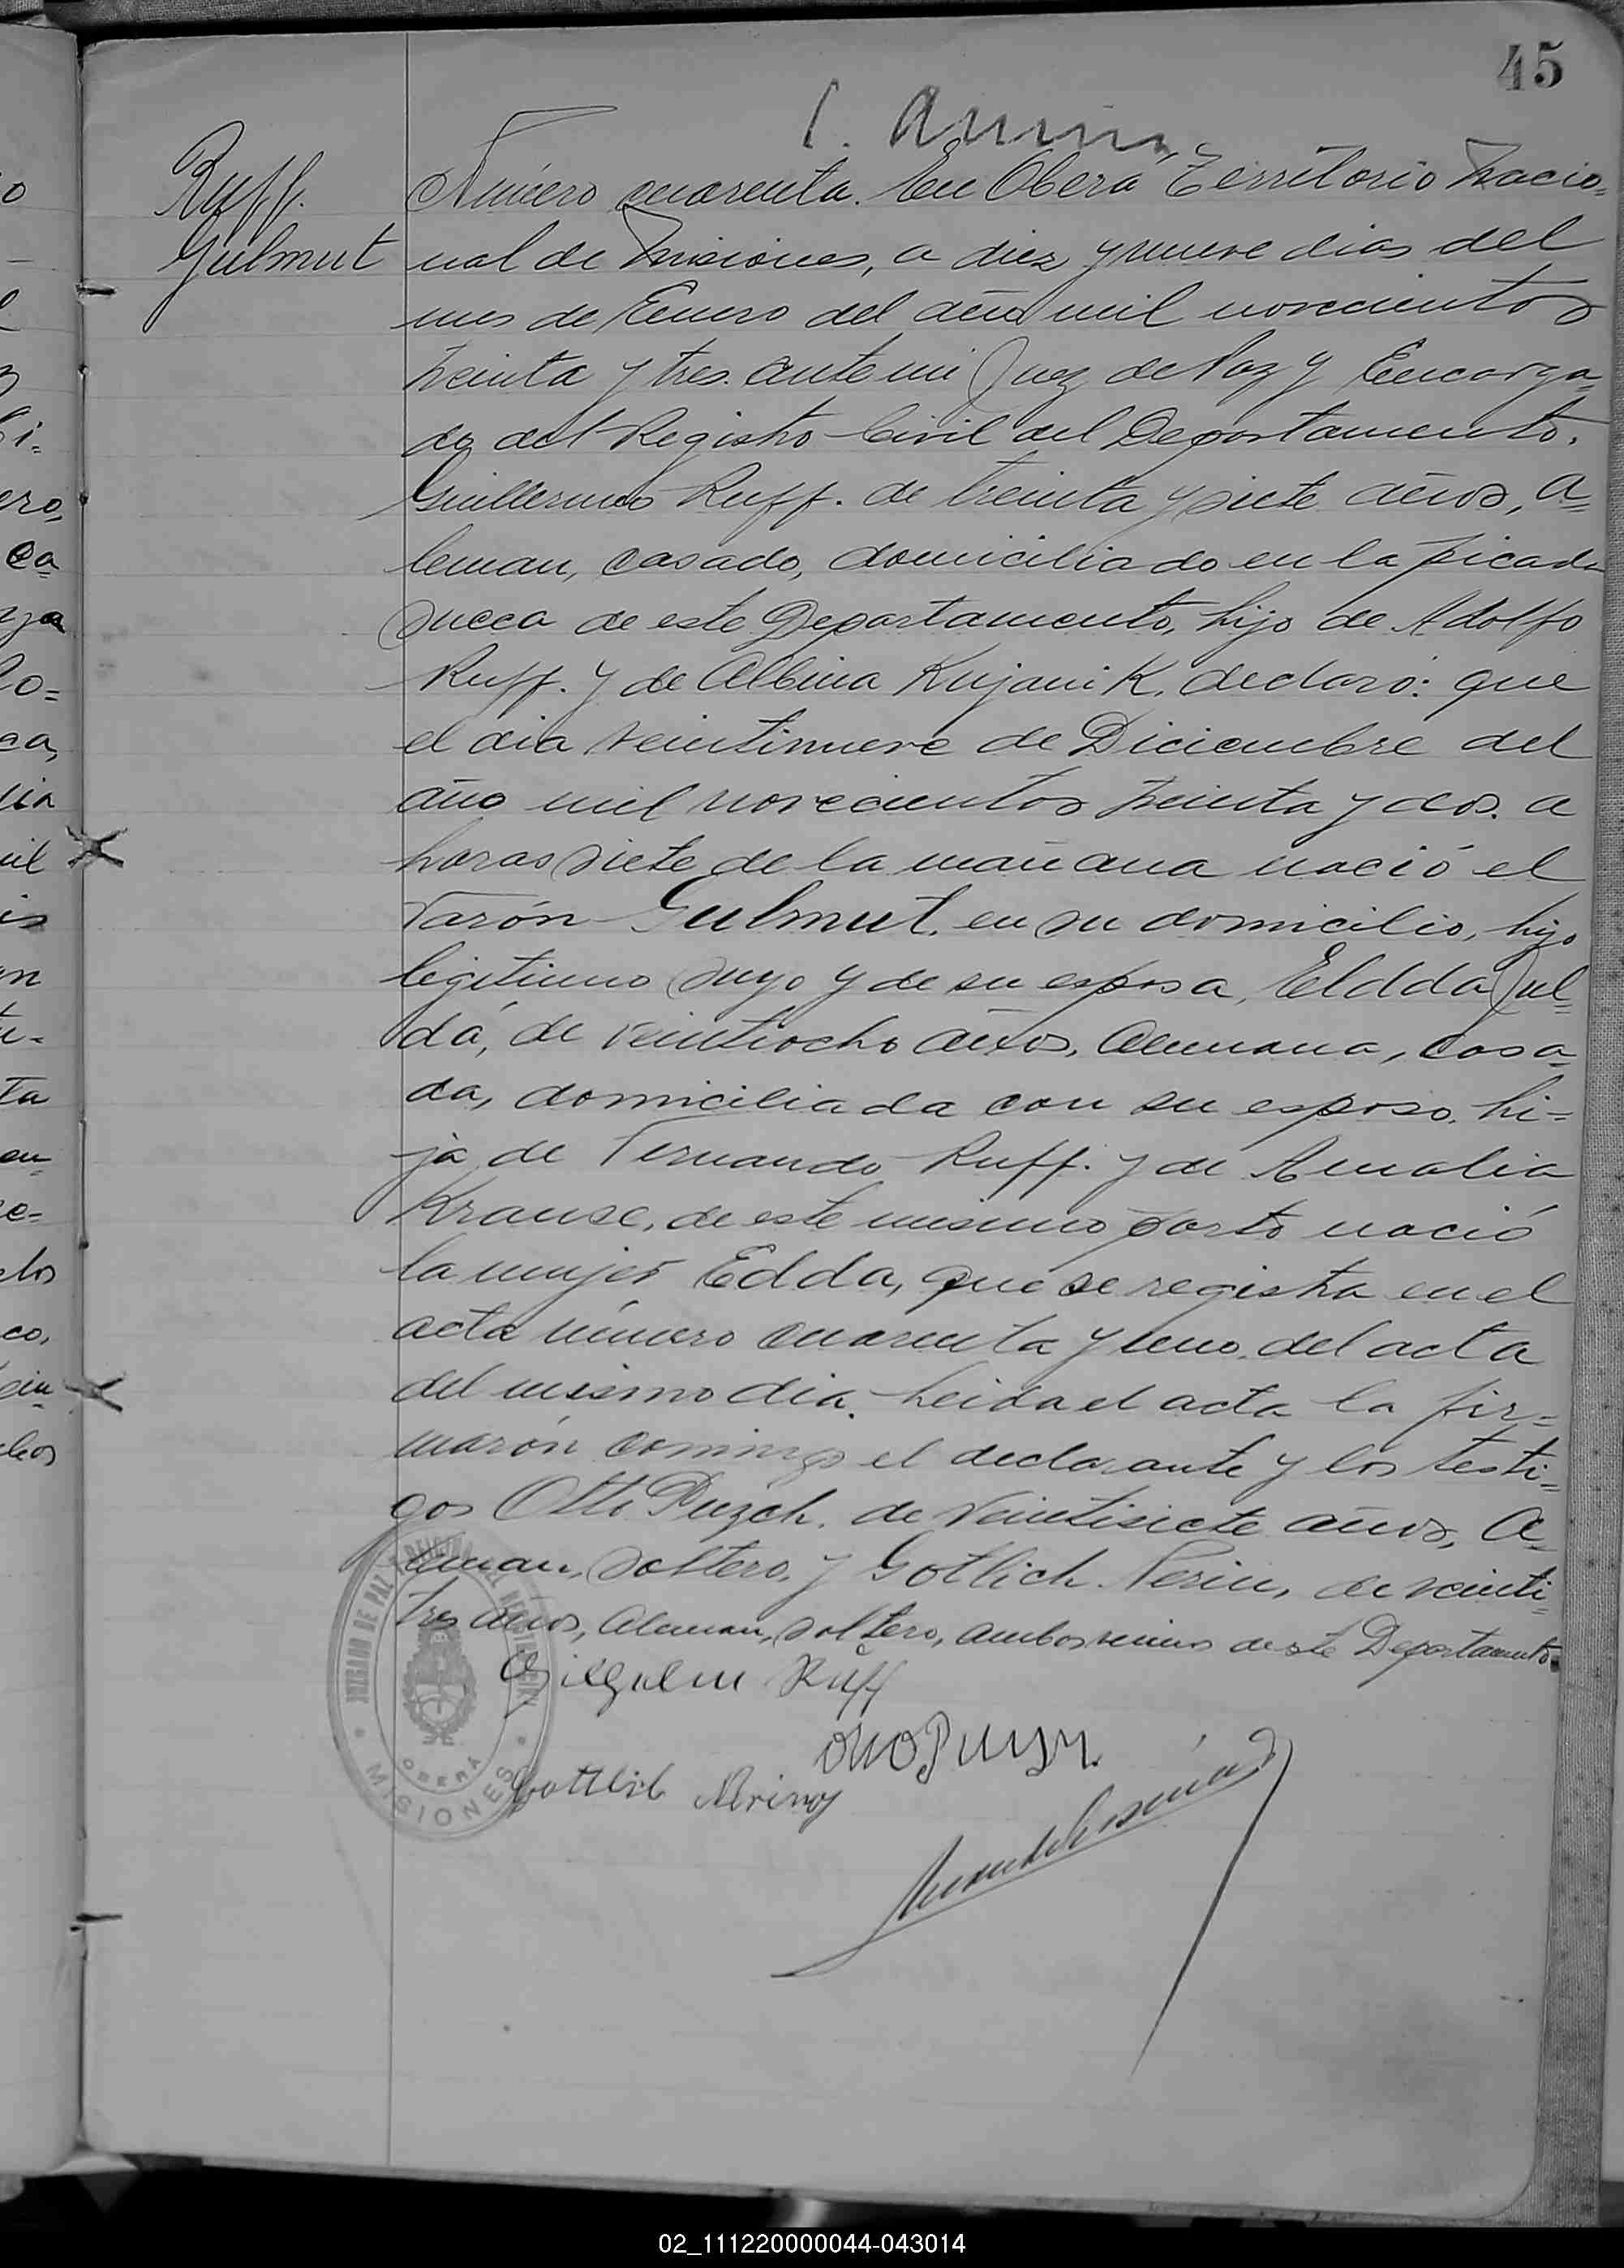 45
Ruff.
Gulmut
Número cuarenta. En Oberá Territorio Nacio=
nal de Misiones, a diez y nueve dias del
mes de Enero del año mil novecientos
treinta y tres. ante mi Juez de Paz y Encarga=
do del Registro Civil del Departamento.
Guillermo Ruff. de treinta y siete años, a=
leman, casado, domiciliado en la picada
sueca de este Departamento, hijo de Adolfo
Ruff. y de Albina Kujanik, declaró: que
el dia veintinueve de Diciembre del
año mil novecientos treinta y dos. a
horas siete de la mañana nació el
varón Gulmut. en su domicilio, hijo
legitimo suyo y de su esposa, Eldda Jul=
da, de veintiocho años, Alemana, casa=
da, domiciliada con su esposo, hi=
ja de Fernando Ruff. y de Amalia
Krause, de este mismo parto nació
la mujer Edda, que se registra en el
acta número cuarenta y uno. del acta
del mismo dia. Leida el acta la fir=
marón conmigo el declarante y los testi=
gos Otto Puzch. de veintisiete años, A=
leman, soltero, y Gotlich Nerin, de veinti
tres años, Aleman, soltero, ambos vecinos de este Departamento
JUZGADO DE PAZ
OBERÁ
MISIONES
Ruff
Gottlib
02_111220000044-043014